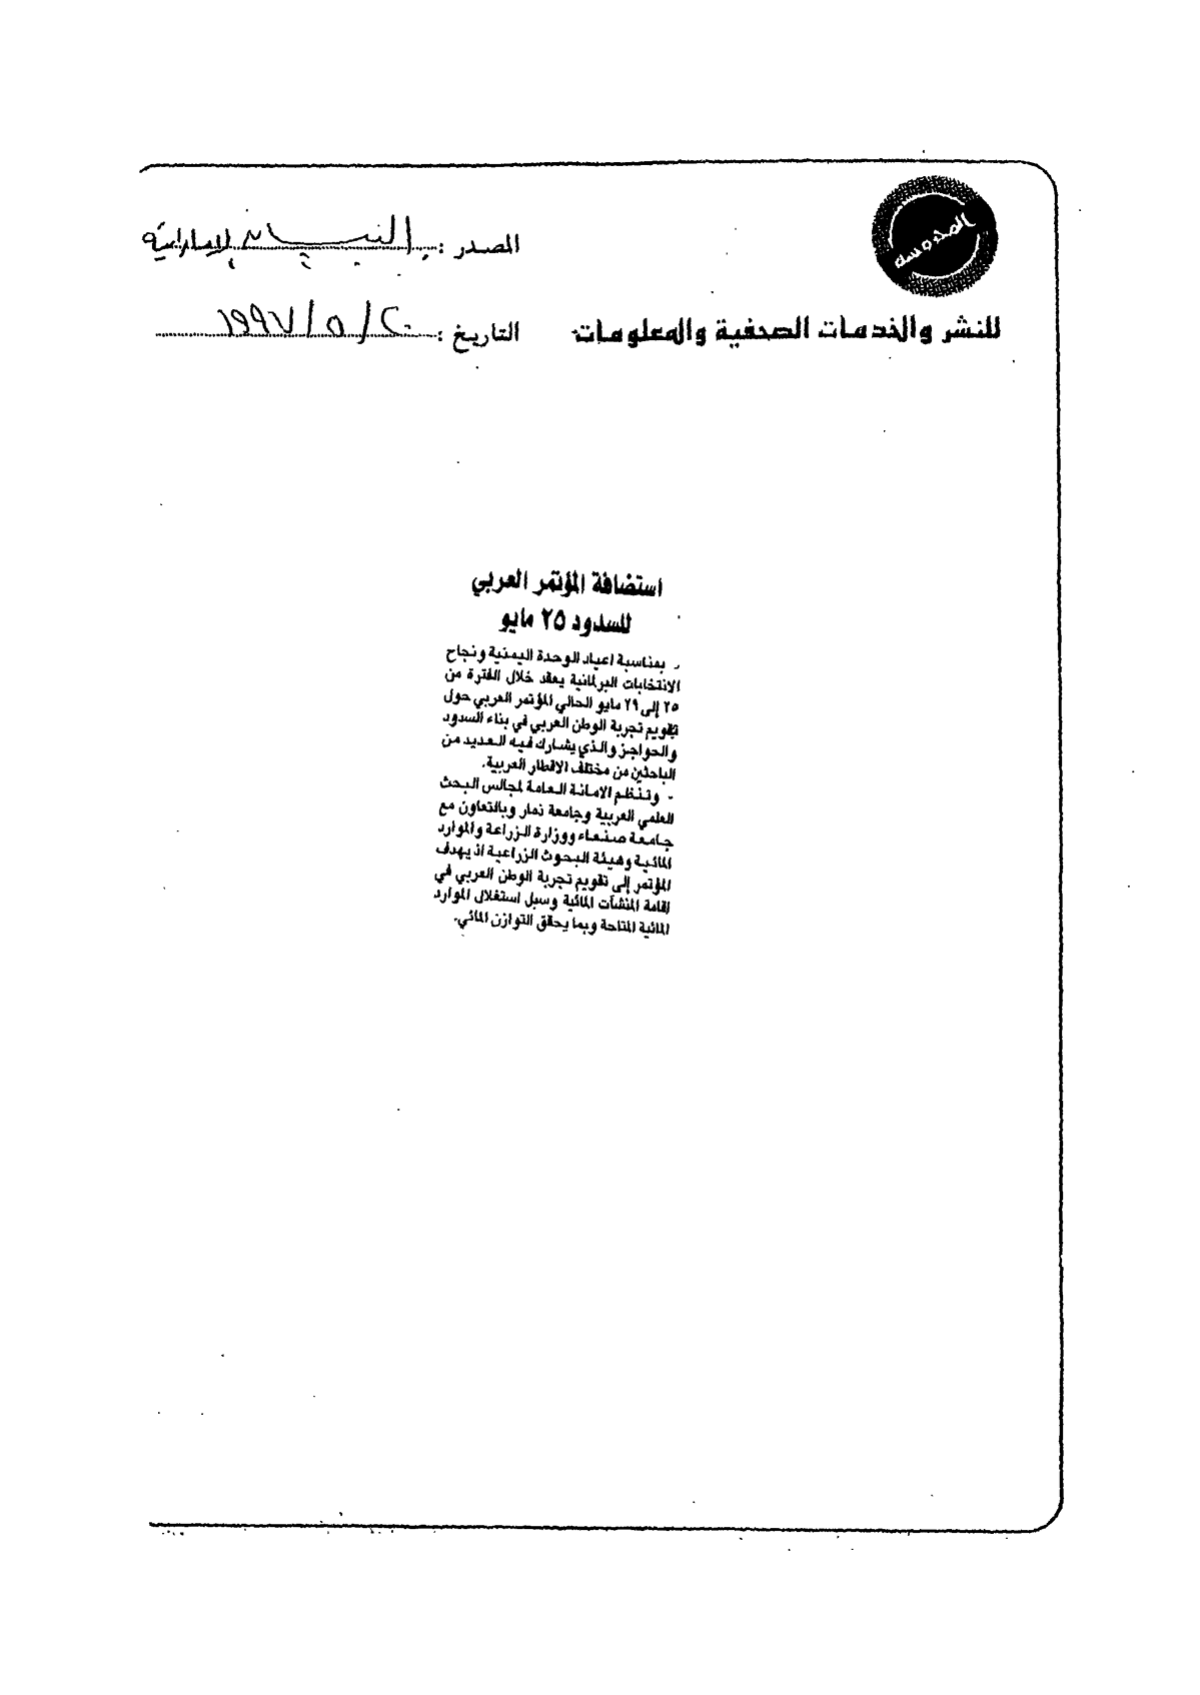 المصدر : البيان الإماراتية
للنشر والخدمات الصحفية والمعلومات
التاريخ : ٢٠/٥/١٩٩٧
استضافة المؤتمر العربي
للسدود ٢٥ مايو
- بمناسبة اعياد الوحدة اليمنية ونجاح
الانتخابات البرلمانية يعقد خلال الفترة من
٢٥ إلى ٢٩ مايو الحالي المؤتمر العربي حول
تقويم تجربة الوطن العربي في بناء السدود
والحواجز والذي يشارك فيه العديد من
الباحثين من مختلف الاقطار العربية.
- وتنظم الامانة العامة لمجالس البحث
العلمي العربية وجامعة ذمار وبالتعاون مع
جامعة صنعاء ووزارة الزراعة والموارد
المائية وهيئة البحوث الزراعية اذ يهدف
المؤتمر إلى تقويم تجربة الوطن العربي في
اقامة المنشآت المائية وسبل استغلال الموارد
المائية المتاحة وبما يحقق التوازن المائي.